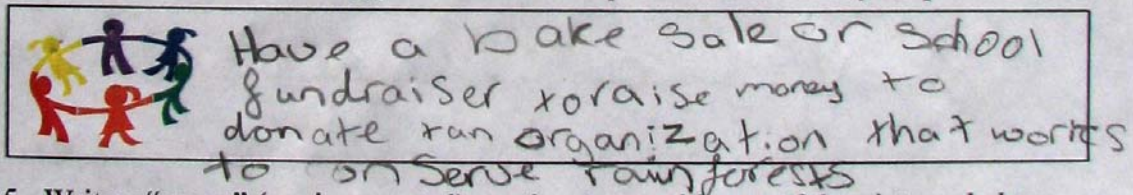 Have a bake sale or School
fundraiser to raise money to
donate tan organization that works
to onserve rainforests